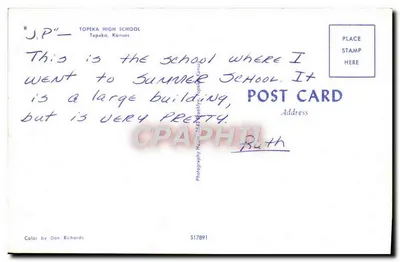 "J.P" —
TOPEKA HIGH SCHOOL
Topeka, Kansas
This is the school where I
went to SUMMER SCHOOL. It
is a large building,
but is VERY PRETTY.
Ruth
PLACE
STAMP
HERE
POST CARD
Address
CPAPHIL
Color by Don Richards
S17891